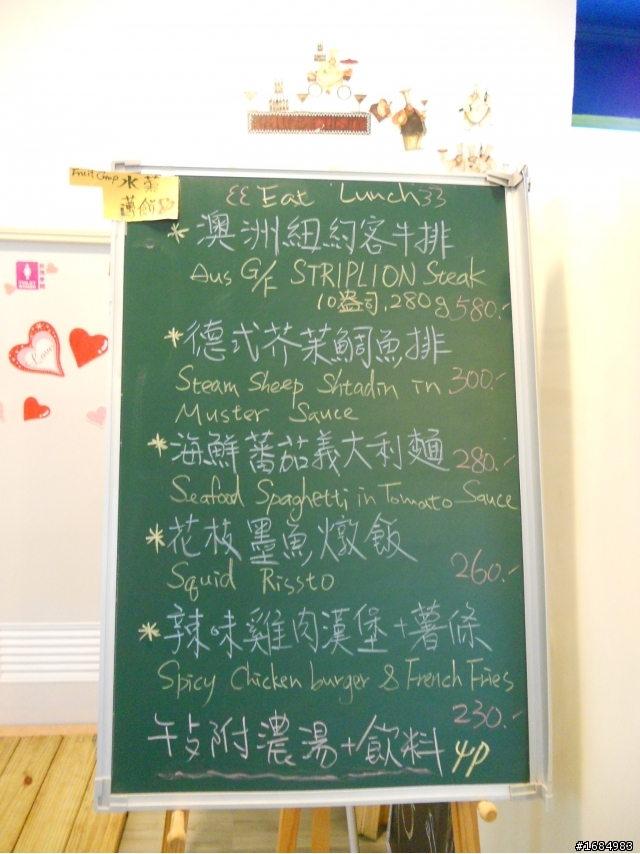 Fruit Crap 水菓
薄餅
Eat Lunch
* 澳洲紐約客牛排
Aus G/F STRIPLION Steak
10盎司,280g 580.-
* 德式芥茉鯛魚排
Steam Sheep Shtadin in 300.-
Muster Sauce
* 海鮮蕃茄義大利麵 280.-
Seafood Spaghetti in Tomato Sauce
* 花枝墨魚燉飯
Squid Rissto 260.-
* 辣味雞肉漢堡+薯條
Spicy Chicken burger & French Fries
230.-
附濃湯+飲料
#1684983